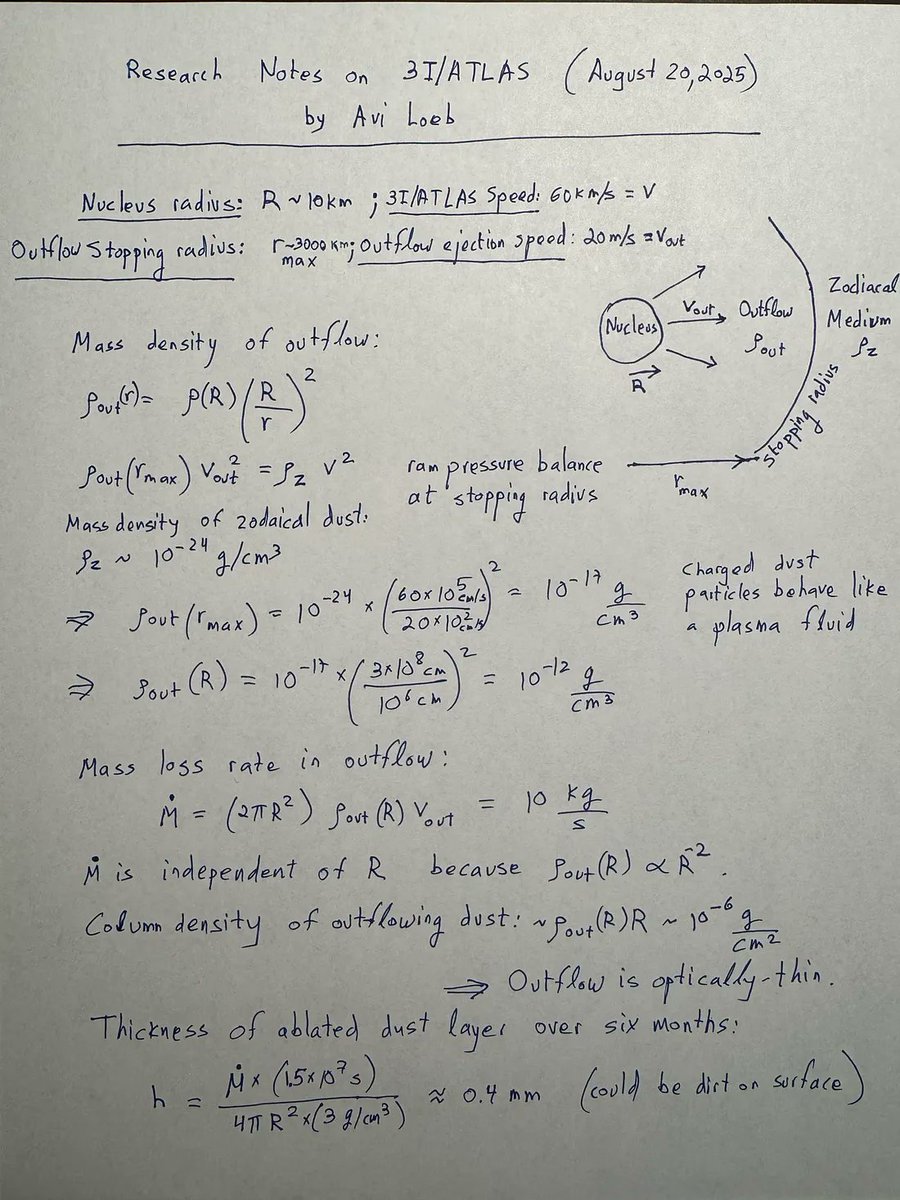 Research Notes on 3I/ATLAS (August 20, 2025)
by Avi Loeb
Nucleus radius: R ~ 10 km ; 3I/ATLAS Speed: 60 km/s = V
Outflow Stopping radius: r_max ~3000 km; Outflow ejection speed: 20 m/s = V_out
Nucleus
R
V_out
Outflow
ρ_out
Zodiacal
Medium
ρ_z
stopping radius
r_max
Mass density of outflow:
ρ_out(r) = ρ(R) (R/r)^2
ρ_out(r_max) V_out^2 = ρ_z V^2
ram pressure balance
at stopping radius
Mass density of zodaical dust:
ρ_z ~ 10^-24 g/cm^3
⇒ ρ_out(r_max) = 10^-24 × (60×10^5 cm/s / 20×10^2 cm/s)^2 = 10^-17 g/cm^3
Charged dust
particles behave like
a plasma fluid
⇒ ρ_out(R) = 10^-17 × (3×10^8 cm / 10^6 cm)^2 = 10^-12 g/cm^3
Mass loss rate in outflow:
Ṁ = (2πR^2) ρ_out(R) V_out = 10 kg/s
Ṁ is independent of R because ρ_out(R) ∝ R^-2.
Column density of outflowing dust: ~ρ_out(R)R ~ 10^-6 g/cm^2
⇒ Outflow is optically-thin.
Thickness of ablated dust layer over six months:
h = Ṁ × (1.5×10^7 s) / 4πR^2×(3 g/cm^3) ≈ 0.4 mm (could be dirt on surface)